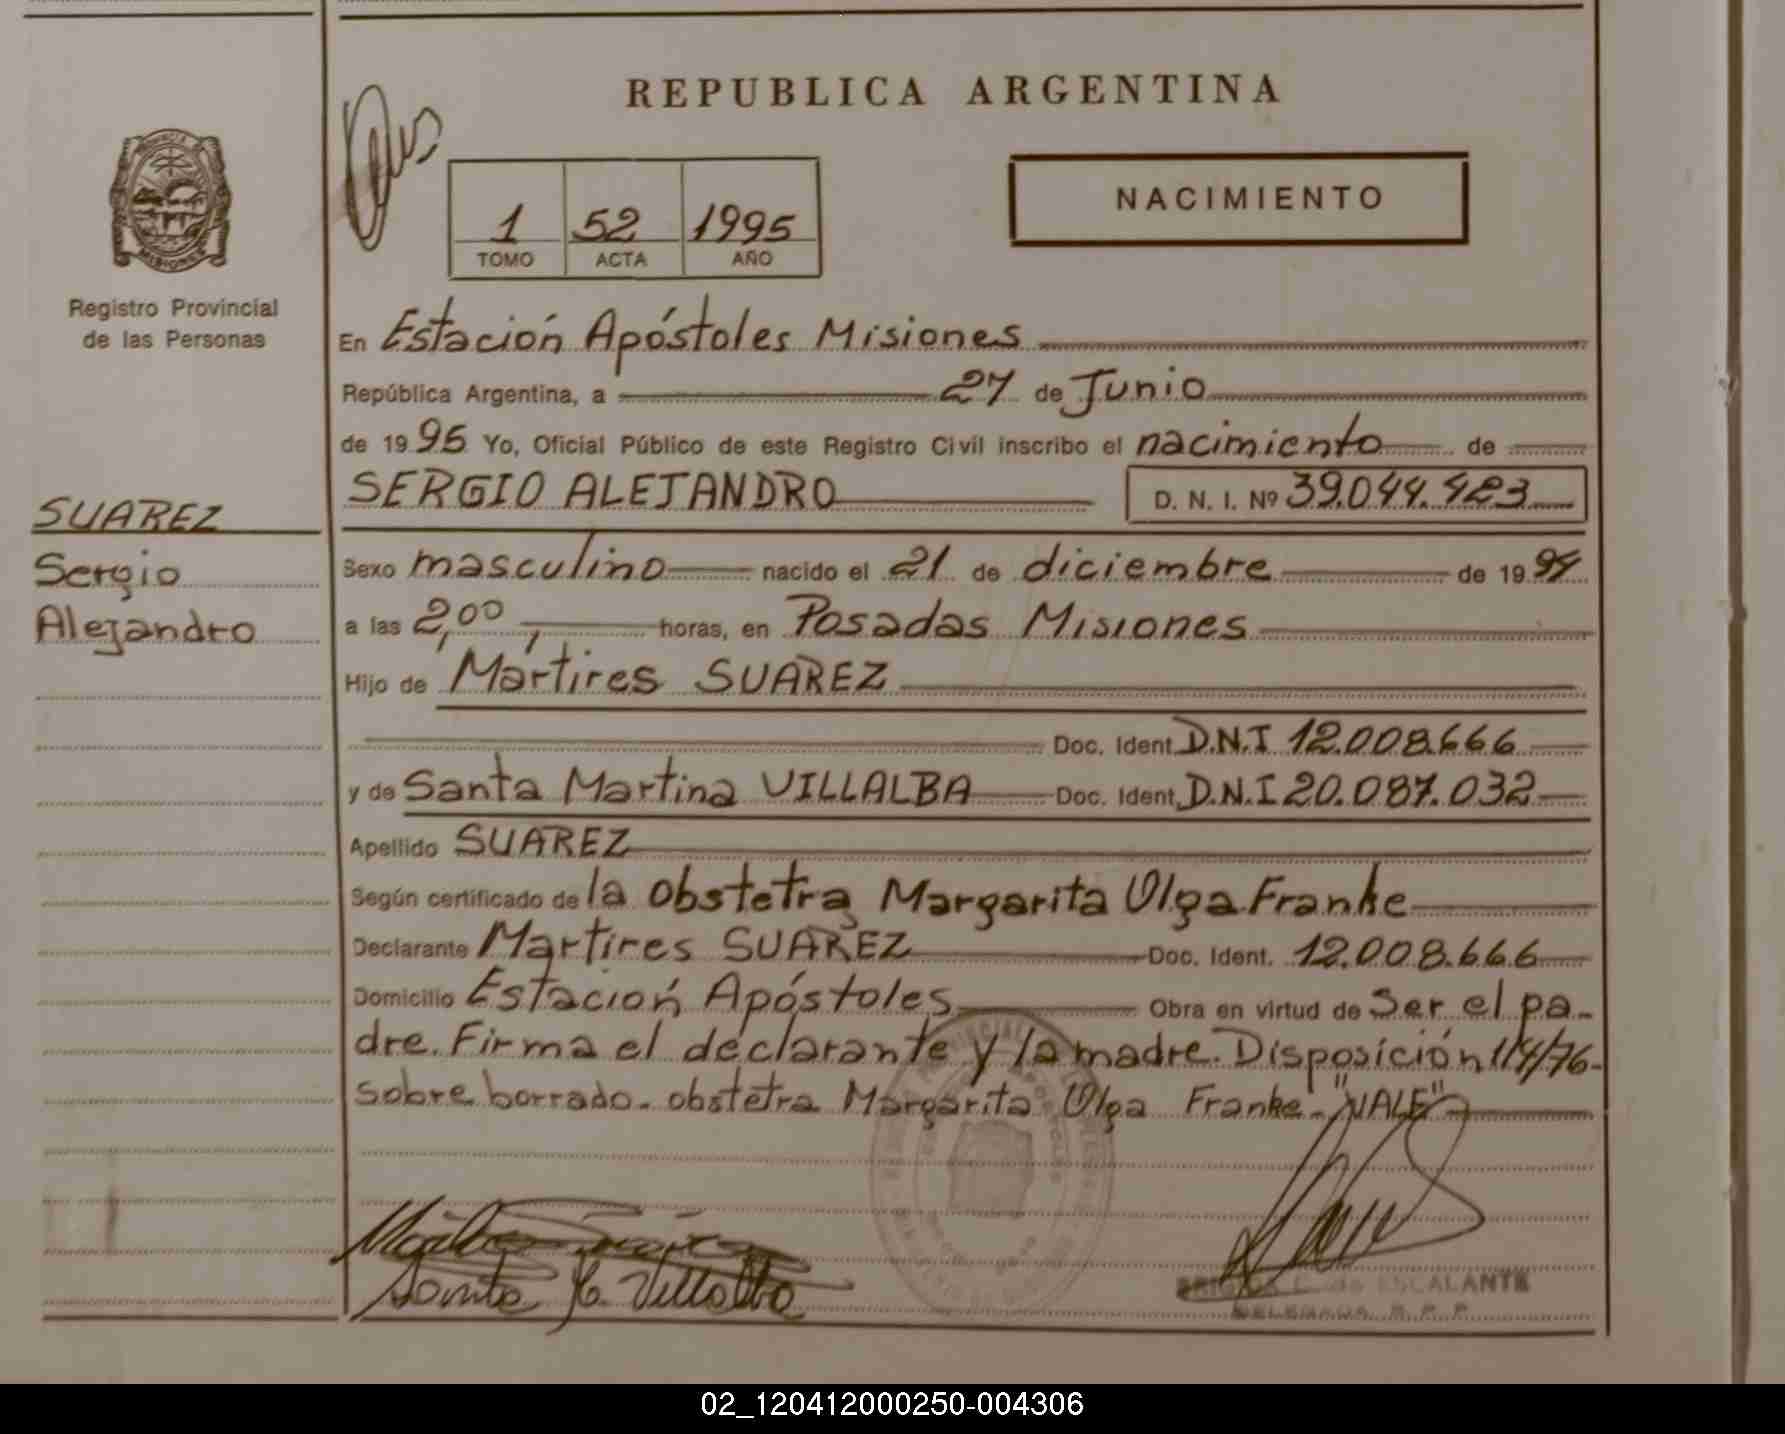 REPUBLICA ARGENTINA
NACIMIENTO
1 52 1995
TOMO ACTA AÑO
MISIONES
Registro Provincial
de las Personas
En Estación Apóstoles Misiones
República Argentina, a 27 de Junio
de 1995 Yo, Oficial Público de este Registro Civil inscribo el nacimiento de
SUAREZ
Sergio
Alejandro
SERGIO ALEJANDRO D. N. I. Nº 39.044.423
Sexo masculino nacido el 21 de diciembre de 1994
a las 2,00 horas, en Posadas Misiones
Hijo de Mártires SUAREZ
Doc. Ident. D.N.I 12.008.666
y de Santa Martina VILLALBA Doc. Ident. D.N.I 20.087.032
Apellido SUAREZ
Según certificado de la obstetra Margarita Olga Franke
Declarante Martires SUAREZ Doc. Ident. 12.008.666
Domicilio Estación Apóstoles Obra en virtud de Ser el pa-
dre. Firma el declarante y la madre. Disposición 1/4/76-
sobre borrado. obstetra Margarita Olga Franke "VALE"
Santa M. Villalba
ESCALANTE
DELEGADA R. P. P.
02_120412000250-004306